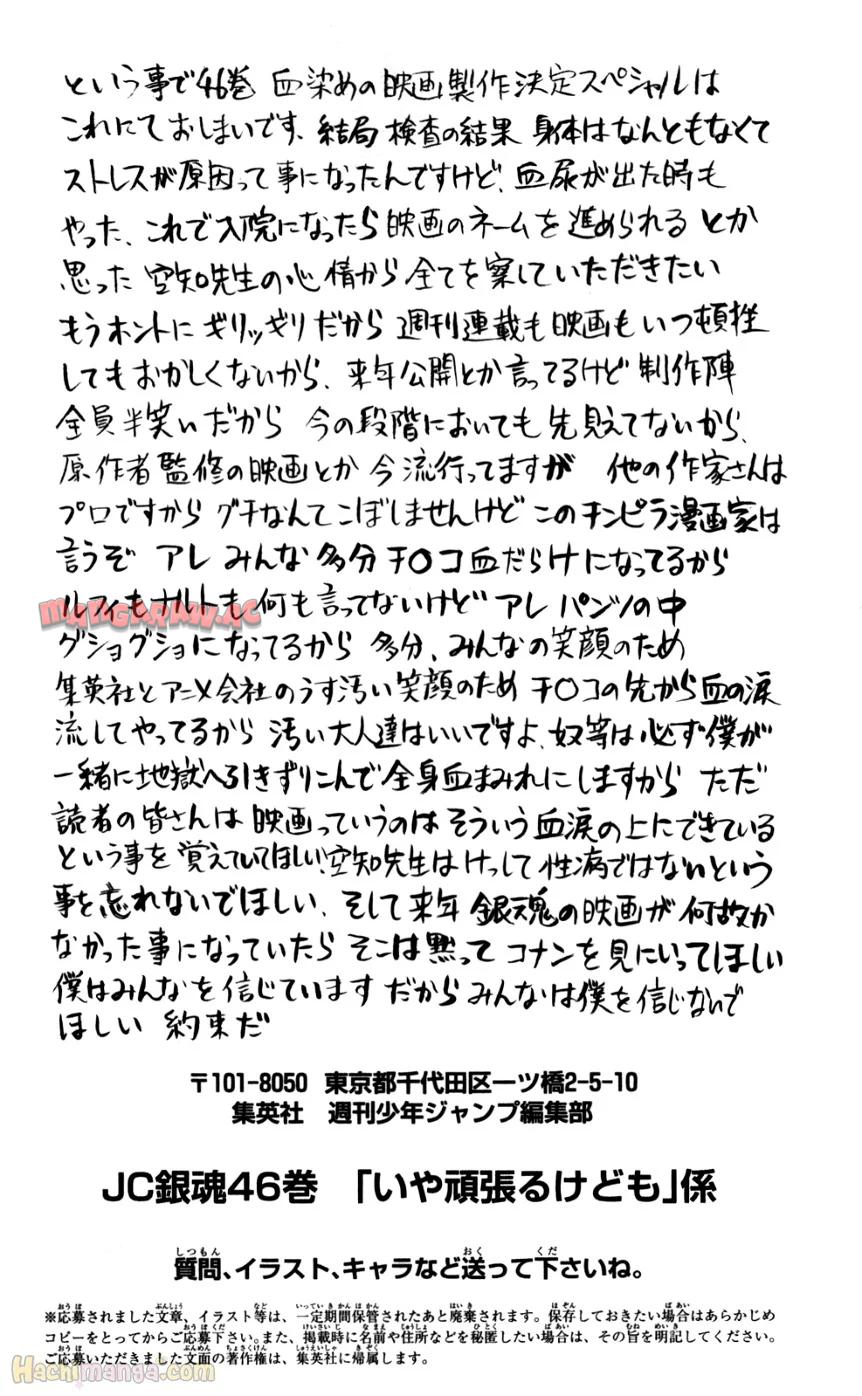 という事で46巻 血染めの映画製作決定スペシャルは
これにておしまいです、結局 検査の結果 身体はなんともなくて
ストレスが原因って事になったんですけど、血尿が出た時も
やった、これで入院になったら映画のネームを進められる とか
思った 空知先生の心情から 全てを察していただきたい
もうホントにギリッギリだから 週刊連載も映画もいつ頓挫
してもおかしくないから、来年公開とか言ってるけど 制作陣
全員半笑いだから 今の段階においても先見えてないから、
原作者監修の映画とか 今流行ってますが 他の作家さんは
プロですから グチなんてこぼしませんけど このチンピラ漫画家は
言うぞ アレ みんな多分 チ○コ血だらけになってるから
ルフィもナルトも 何も言ってないけど アレ パンツの中
グショグショになってるから 多分、みんなの笑顔のため
集英社とアニメ会社のうす汚い笑顔のため チ○コの先から血の涙
流してやってるから 汚い大人達はいいですよ、奴等は必ず僕が
一緒に地獄へ引きずりこんで全身血まみれにしますから ただ
読者の皆さんは 映画っていうのは そういう血涙の上にできている
という事を覚えていてほしい、空知先生はけっして性病ではないという
事を忘れないでほしい、そして来年 銀魂の映画が何故か
なかった事になっていたら そこは黙って コナンを見にいってほしい
僕はみんなを信じています だからみんなは僕を信じないで
ほしい 約束だ
〒101-8050 東京都千代田区一ツ橋2-5-10
集英社 週刊少年ジャンプ編集部
JC銀魂46巻 「いや頑張るけども」係
質問、イラスト、キャラなど送って下さいね。
※応募されました文章、イラスト等は、一定期間保管されたあと廃棄されます。保存しておきたい場合はあらかじめ
コピーをとってからご応募下さい。また、掲載時に名前や住所などを秘匿したい場合は、その旨を明記してください。
ご応募いただきました文面の著作権は、集英社に帰属します。
MANGARAW.AC
Hachimanga.com